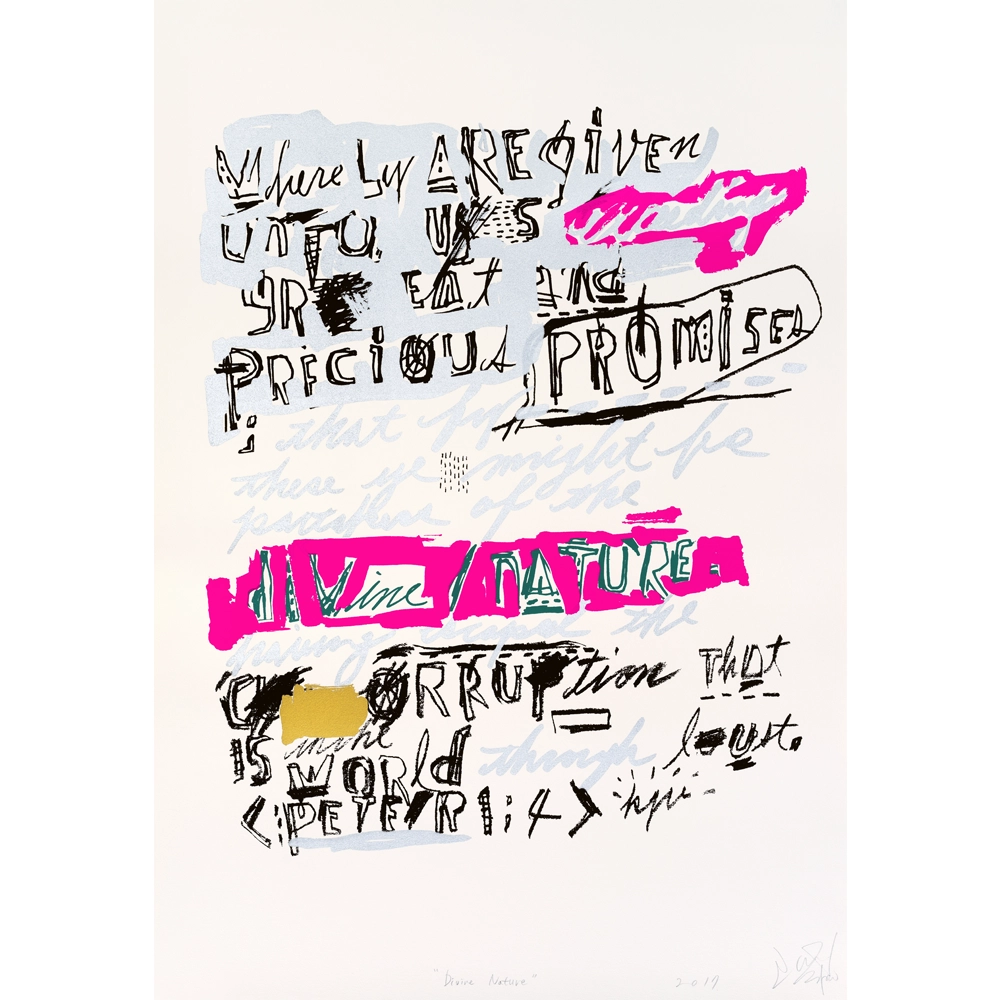 Whereby ARE given
UNTO US
GREAT AND
PRECIOUS PROMISES
: that by
these ye might be
partakers of the
diVine / NATURE.
having escaped the
CORRUPtion ThAt
IS in the WORLd through lust.
<:PETER 1:4> kjv
"Divine Nature" 2019